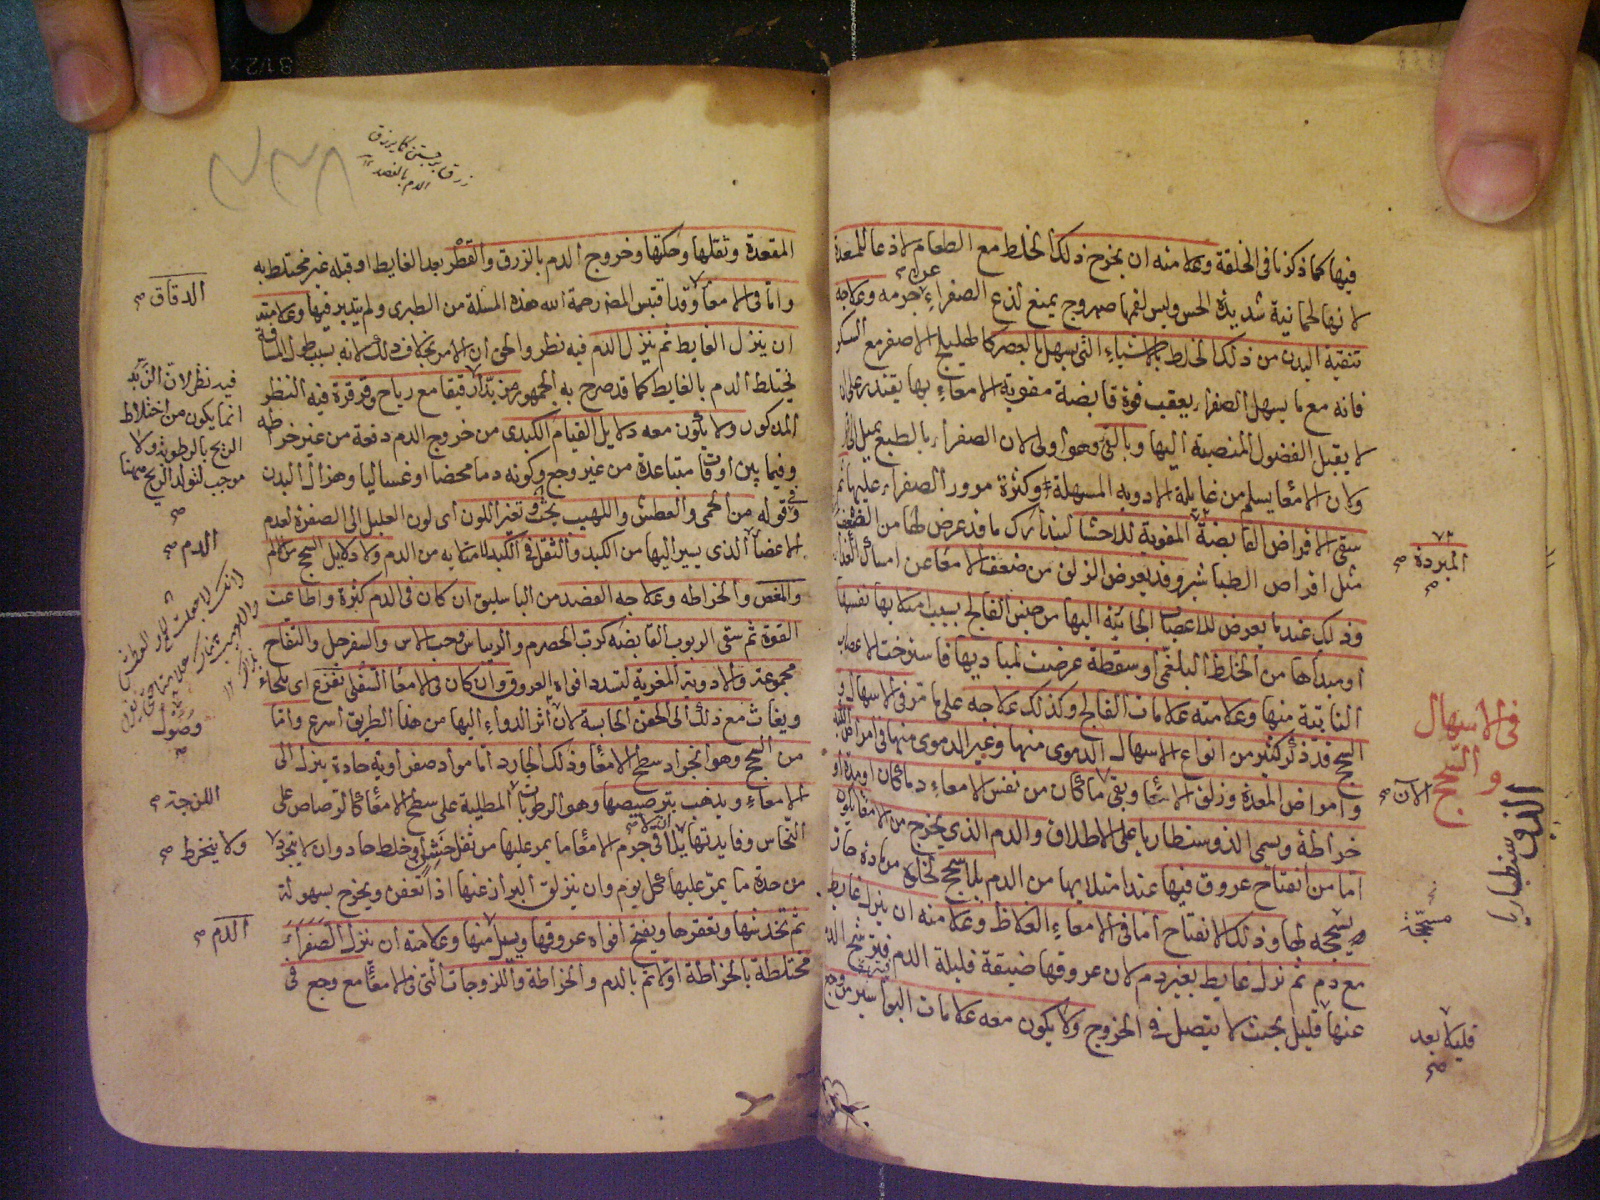 فيها كما ذكرنا فى الخلقة وعلامته ان يخرج ذلك الخلط مع الطعام لاذعا للمعدة
لانها لحمانية شديدة الحس وليس لفمها صهروج يمنع لذع الصفراء عن جرمه وعلاجه
تنقية البدن من ذلك الخلط بالاشياء التى يسهل بالعصر كالهليلج الاصفر مع السكر
فانه مع ما يسهل الصفراء يعقب قوة قابضة مقوية الامعاء بها يقتدر على ان
لا يقبل الفضول المنصبة اليها وبالقى وهو اولى لان الصفراء بالطبع يميل الى
ولان الامعا يسلم من غايلة الادوية المسهلة وكثرة مرور الصفراء عليها ثم
سقى الاقراص القابضة المقوية للاحشا ليتدارك ما قد عرض لها من الضعف
مثل اقراص الطباشير وقد يعرض الزلق من ضعف الامعا عن امساك الغذاء
وذلك عندما يعرض للاعصاب الجائية اليها من جنس الفالج بسبب امتلائها نفسها
او مبداها من الخلط البلغمى او سقطة عرضت لمباديها فاسترخت الاعصاب
النابتة منها وعلامته علامات الفالج وكذلك علاجه على ما مر فى الاسهال و
السحج قد ذكر كثير من انواع الاسهال الدموى منها وغير الدموى منها فى امراض الكبد
وامراض المعدة وزلق الامعا وبقى ما كان من نفس الامعاء دما كان او مدة او
خراطة ويسمى الذوسنطاريا على الاطلاق والدم الذى يخرج من الامعا يكون
اما من انفتاح عروق فيها عند امتلائها من الدم بلا سحج لخلوه من مادة حادة
يسحجه لها وذلك الانفتاح اما فى الامعاء الغلاظ وعلامته ان ينزل غايط
مع دم ثم نزل غايط بغير دم لان عروقها ضيقة قليلة الدم فيترشح الدم
عنها قليل بحيث لا يتصل فى الخروج ولا يكون معه علامات البواسير من وجع
المبردة صح
فى الاسهال
والسحج
الآن صح
الذوسنطاريا
مسحجة
قليلا بعد
صح
زرق برجستن كما يزرق
الدم بالفصد ١٢
المقعدة وثقلها وحكتها وخروج الدم بالزرق والقطر بعد الغايط او قبله غير مختلط به
واما فى الامعا وقد اقتبس المصنف رحمة الله هذه المسئلة من الطبرى ولم يتدبر فيها وعلامته
ان ينزل الغايط ثم ينزل الدم فيه نظر والحق ان الامر بخلاف ذلك لانه بسبب طول المسافة
يختلط الدم بالغايط كما قد صرح به الجمهور من بتدا رقيقا مع رياح وقرقرة فيه النظر
المذكور ولا يكون معه دلايل القيام الكبدى من خروج الدم دفعة من غير خراطة
وفيما بين اوقات متباعدة من غير وجع وكونه دما محضا او غساليا وهزال البدن
وقوله من الحمى والعطش واللهيب بحث وتغير اللون اى لون العليل الى الصفرة لعدم
الاعضا الذى يسير اليها من الكبد والثقل فى الكبد لامتلايه من الدم ولا دلايل السحج من الالم
والمغص والخراطه وعلاجه الفصد من الباسليق ان كان فى الدم كثرة واطاعت
القوة ثم سقى الربوب القابضة كرب الحصرم والريباس وحب الاس والسفرجل والتفاح
مجموعة والادوية المغرية لتسدد افواه العروق وان كان فى الامعا السفلى تفزع اى يلجاء
ويغاث مع ذلك الى الحقن الحابسة لان اثر الدواء اليها من هذا الطريق اسرع واما
من السحج وهو انجراد سطح الامعا وذلك الجارد اما مواد صفراوية حادة ينزل الى
الامعاء ويذهب بترصيصها وهو الرطوبات المطلية على سطح الامعا كالرصاص على
النحاس وفايدتها ليلا تاثر فى جرم الامعا ما يمر عليها من ثفل خشن او خلط حاد وان لا ينجرد
من حدة ما يمر عليها كل يوم وان ينزلق البراز عنها اذا تعفن ويخرج بسهولة
ثم تخدشها وتعقرها ويفتح افواه عروقها ويسيل منها وعلامته ان ينزل الصفراء
مختلطة بالخراطة اولا ثم بالدم والخراطة واللزوجات التى فى الامعا مع وجع فى
الدقاق صح
فيه نظر لان الزبد
انما يكون من اختلاط
الريح بالرطوبة ولا
موجب لتولد الريح ههنا
صح
الدم صح
وصول
صح
اللزجة صح
ولا ينخرط صح
الدم صح